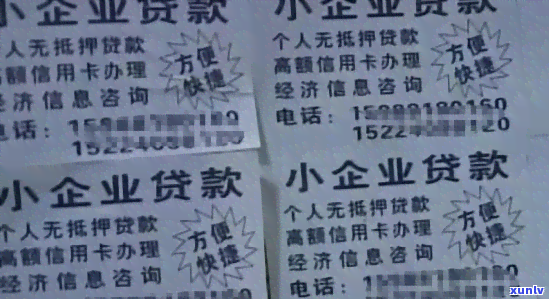 小企业贷款
个人无抵押贷款
高额信用卡办理
经济信息咨询
方便
快捷
电话：
小企业贷款
个人无抵押贷款
高额信用卡办理
经济信息咨询
方便
快捷
电话：
小企业贷款
个人无抵押贷款
高额信用卡办理
经济信息咨询
方便
快捷
小企业贷款
个人无抵押贷款
高额信用卡办理
经济信息咨询
方便
快捷
电话：
xunlv